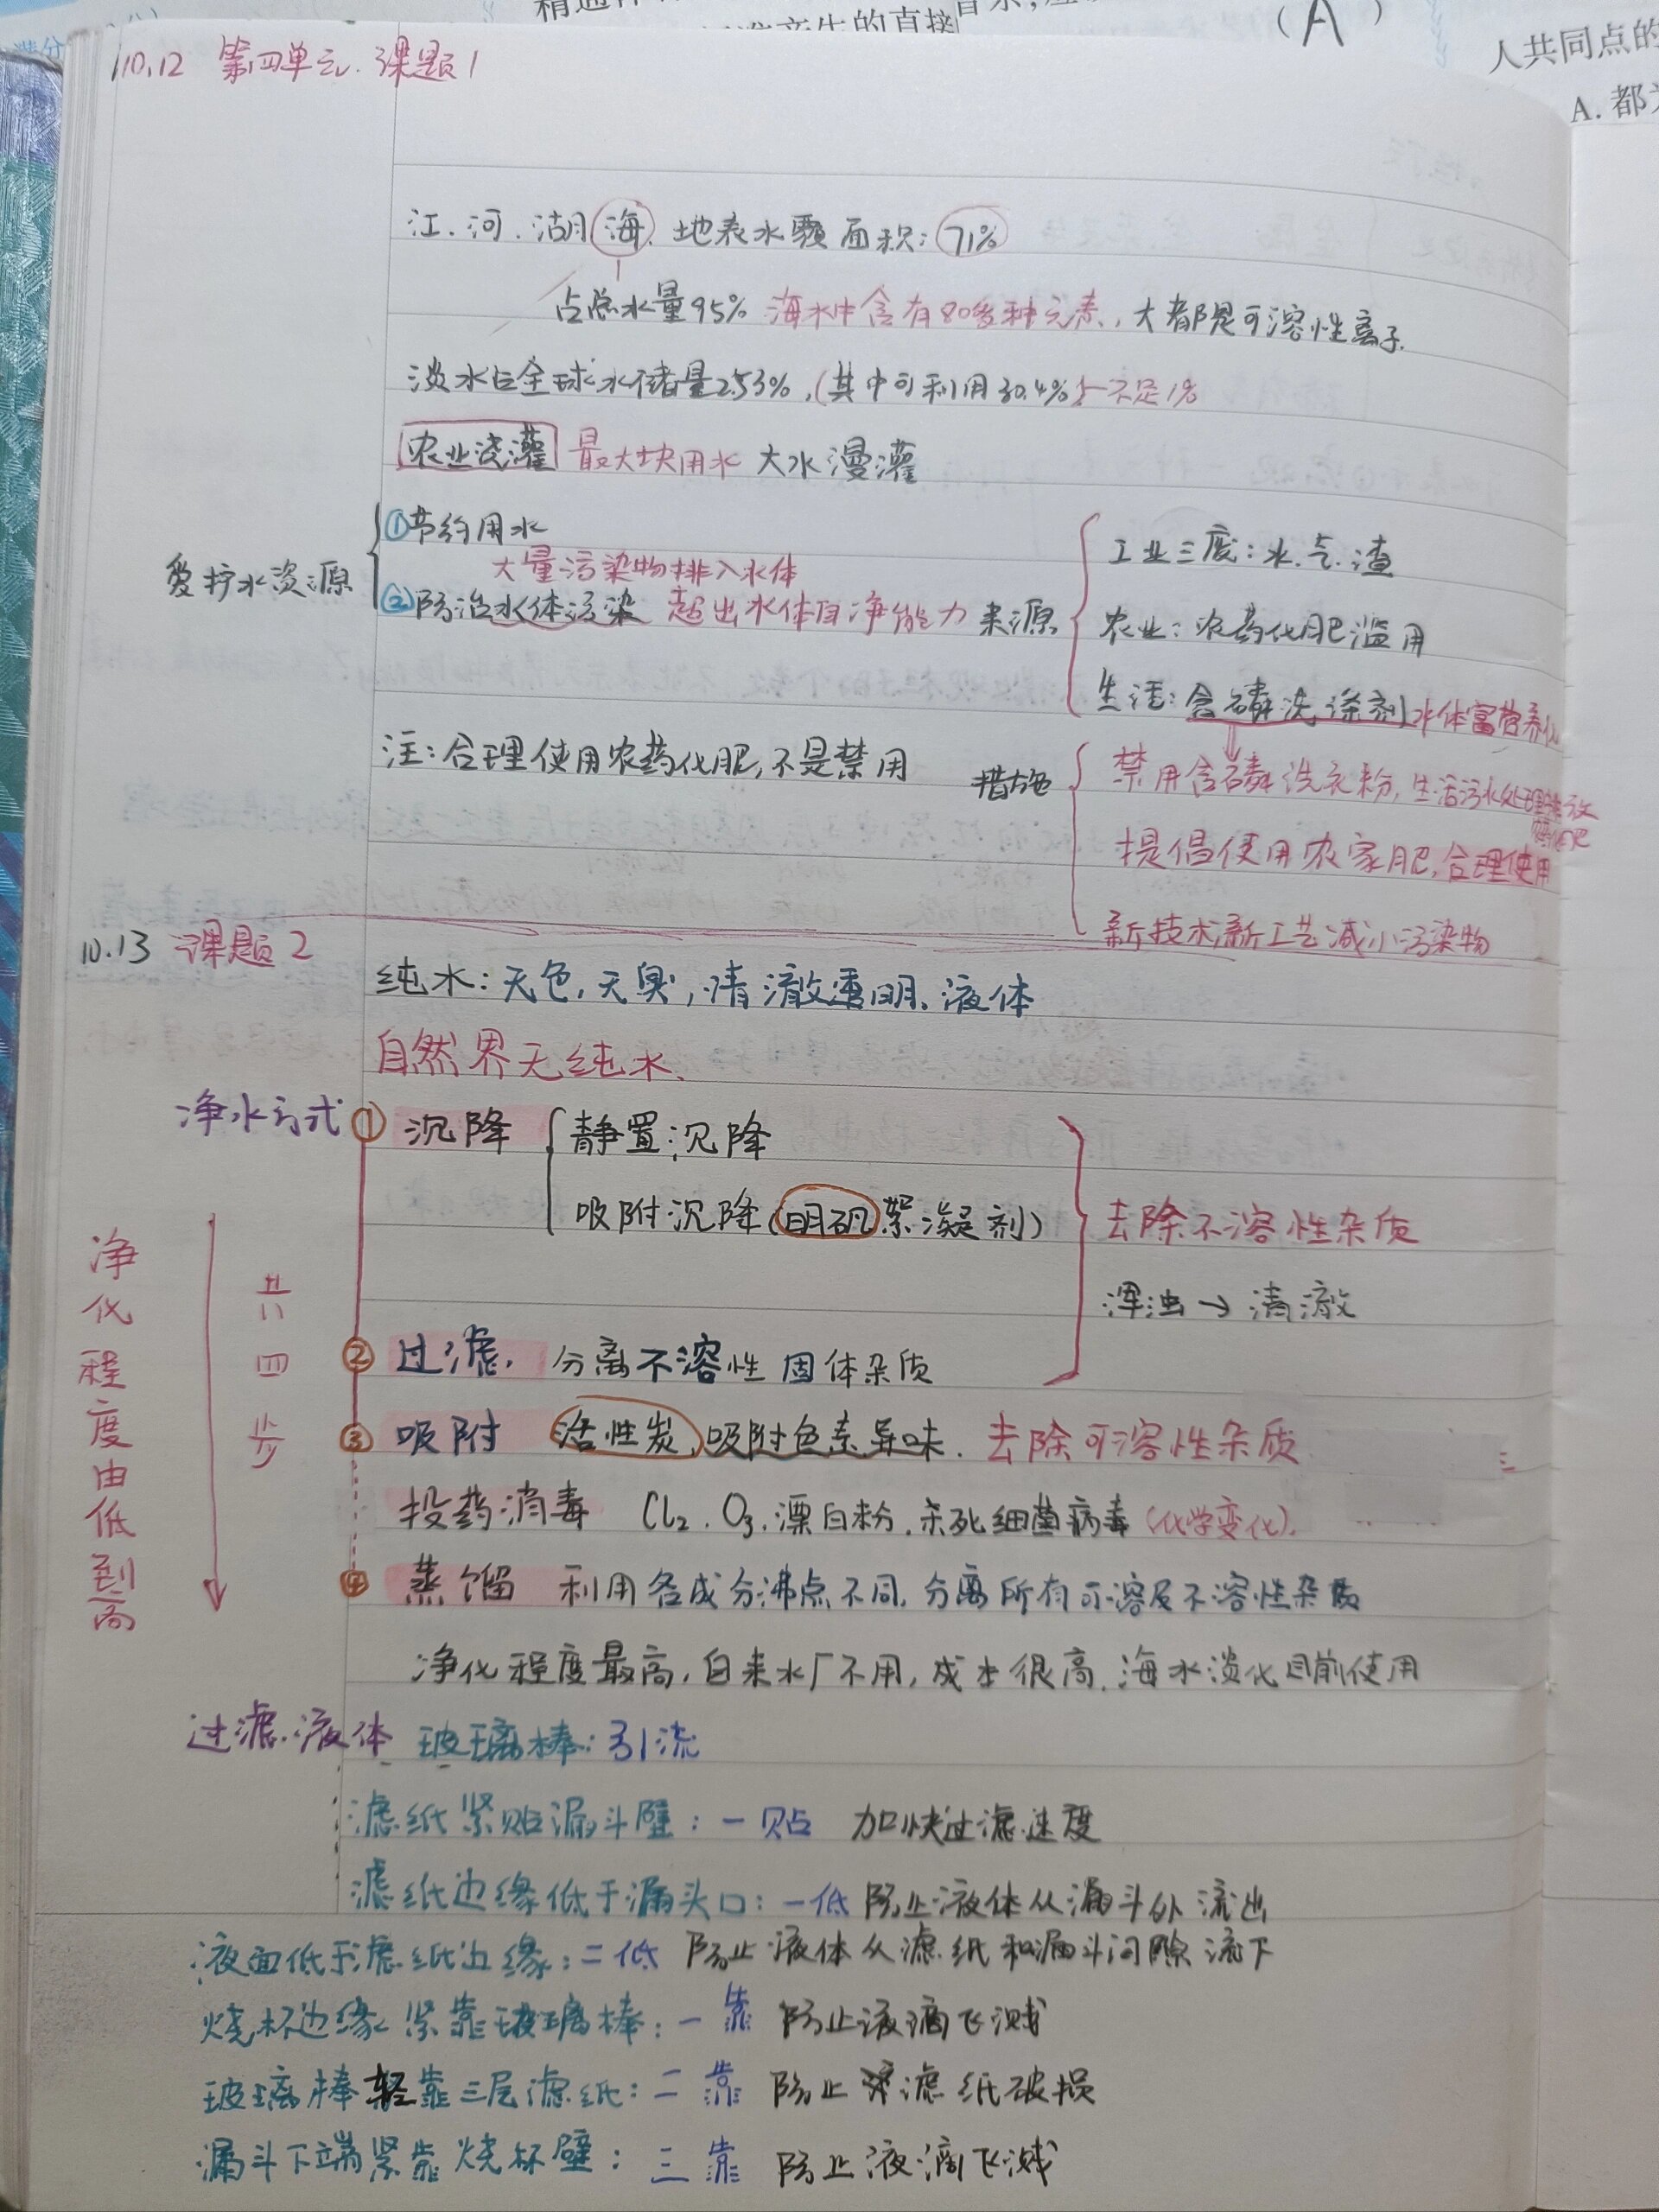 (A)
人共同点的
A.都
10.12 第四单元.课题1
江.河.湖.海.地表水覆面积:71%
占总水量95% 海水中含有80多种元素,大都是可溶性离子.
淡水占全球水储量2.53%,(其中可利用30.4%)不足1%
农业浇灌 最大块用水 大水漫灌
爱护水资源
①节约用水
大量污染物排入水体
②防治水体污染 超出水体自净能力 来源
工业三废:水.气.渣
农业:农药化肥滥用
生活:含磷洗涤剂 水体富营养化
注:合理使用农药化肥,不是禁用
措施
禁用含磷洗衣粉,生活污水处理排放
提倡使用农家肥,合理使用
新技术,新工艺减小污染物
10.13 课题2
纯水:无色,无臭,清澈透明.液体
自然界无纯水.
净水方式 ① 沉降
静置沉降
吸附沉降(明矾絮凝剂)
去除不溶性杂质
浑浊→清澈
净化程度由低到高
共四步
② 过滤. 分离不溶性固体杂质
③ 吸附 活性炭,吸附色素异味. 去除可溶性杂质
投药消毒 Cl₂.O₃.漂白粉.杀死细菌病毒(化学变化).
④ 蒸馏 利用各成分沸点不同,分离所有可溶及不溶性杂质
净化程度最高,自来水厂不用,成本很高.海水淡化目前使用
过滤.液体 玻璃棒:引流
滤纸紧贴漏斗壁:一贴 加快过滤速度
滤纸边缘低于漏斗口:一低 防止液体从漏斗外流出
液面低于滤纸边缘:二低 防止液体从滤纸和漏斗间隙流下
烧杯边缘紧靠玻璃棒:一靠 防止液滴飞溅
玻璃棒轻靠三层滤纸:二靠 防止滤纸破损
漏斗下端紧靠烧杯壁:三靠 防止液滴飞溅